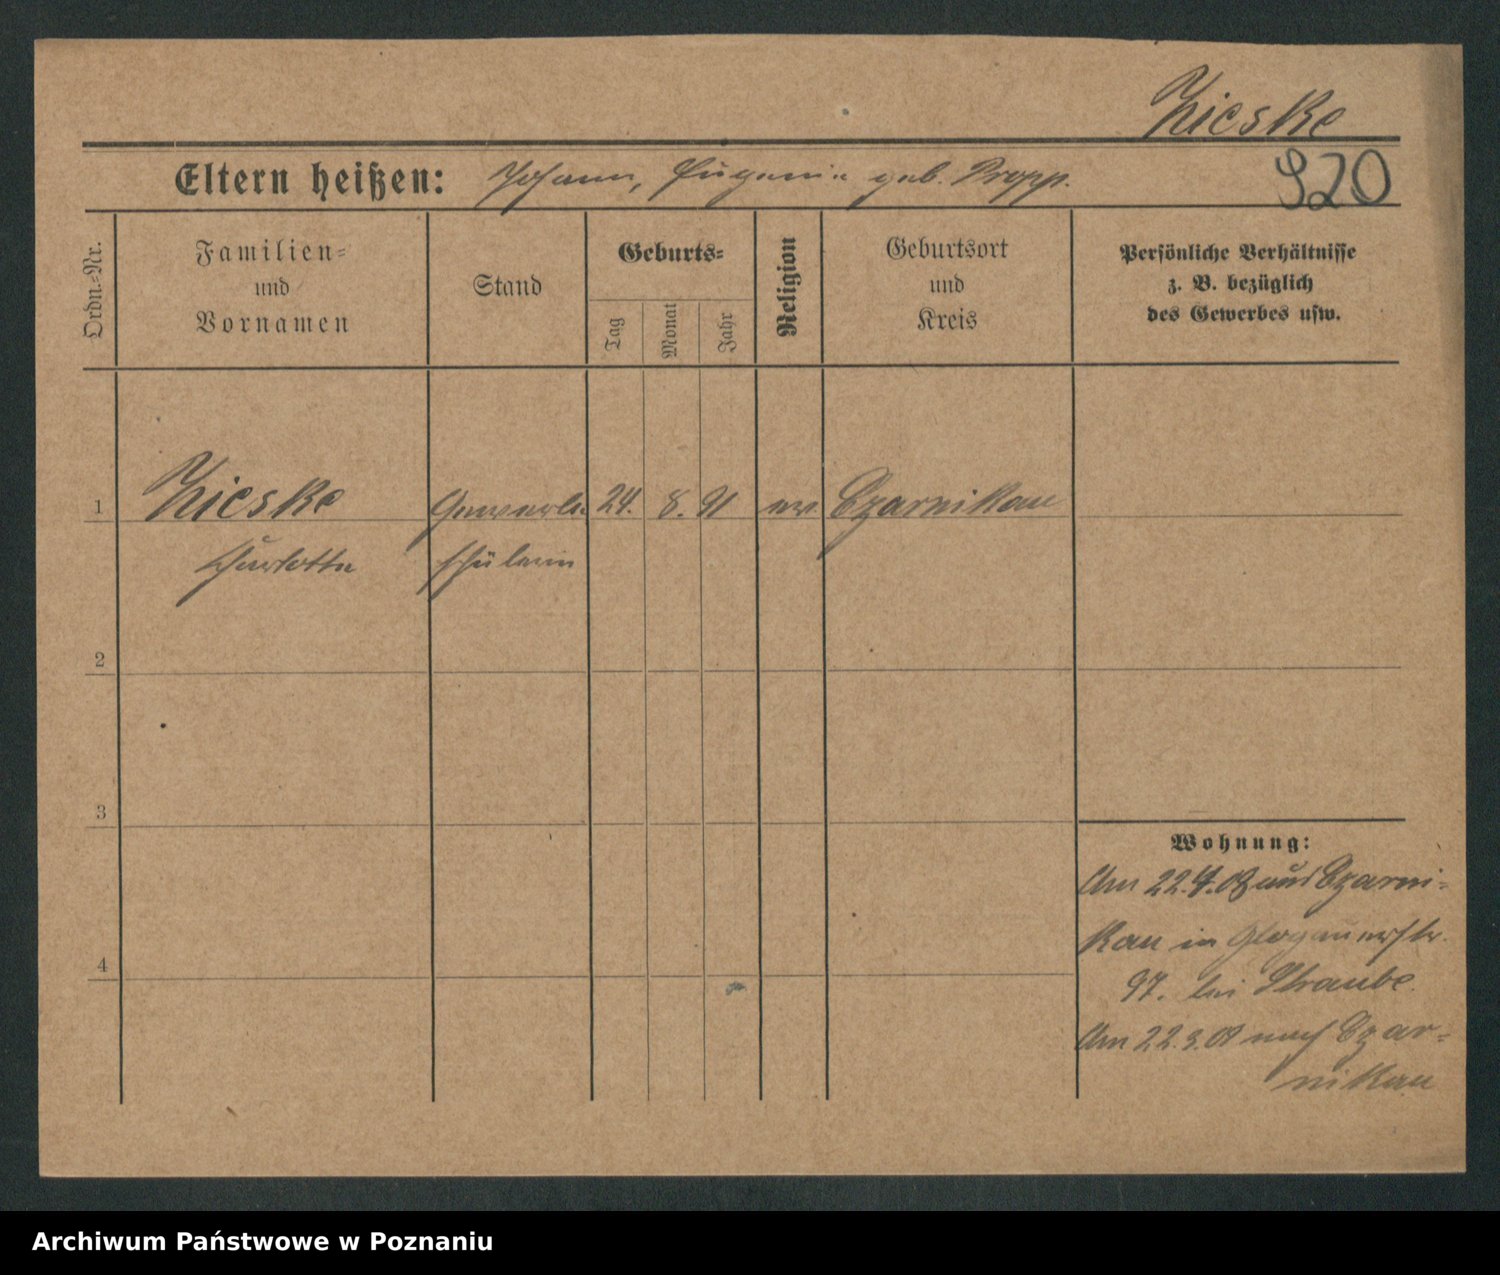 Zieske
Eltern heißen: Johann, Eugenie geb. Propp.
920
Ordn.-Nr.
Familien-
und
Vornamen
Stand
Geburts-
Tag
Monat
Jahr
Religion
Geburtsort
und
Kreis
Persönliche Verhältnisse
z. B. bezüglich
des Gewerbes usw.
1 Zieske Gewerbe 24. 8. 91 ev Czarnikau
Charlotte schülerin
2
3
Wohnung:
Am 22.4.08 aus Czarni-
kau in Glogauerstr.
4
97. bei Straube
Am 22.3.09 nach Czar-
nikau
Archiwum Państwowe w Poznaniu